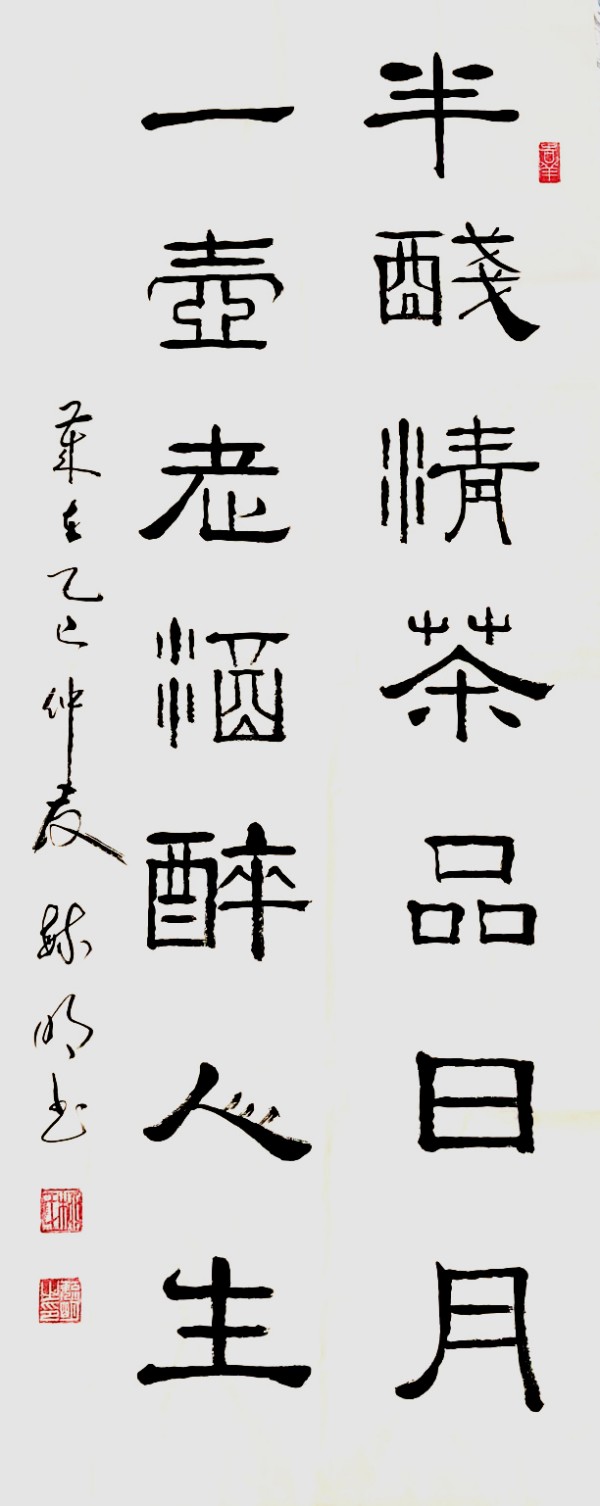 半醆清茶品日月
一壺老酒醉人生
歲在乙巳仲夏 明书